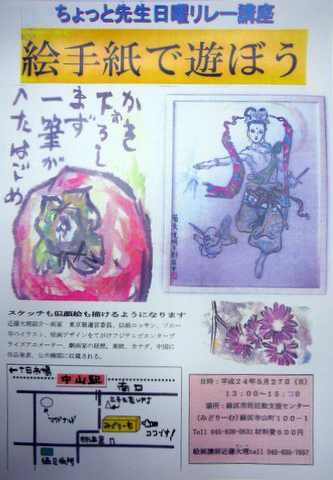 ちょっと先生日曜リレー講座
絵手紙で遊ぼう
かき
おろし
まず
一筆が
へたはじめ
スケッチも似顔絵も描けるようになります
近藤大瑰紹介―画家 東京展運営委員、以前ニッサン、ソニー等
のイラスト、壁画デザインをてがけフジテレビエンタープ
ライズアニメーター、劇画家の経歴。東欧、カナダ、中国に
作品発表、公共機関に収蔵される。
中山駅
南口
マクドナルド
みどりーむ
ココです!
緑区役所
日時:平成24年5月27日(日)
13:00~15:00
場所:緑区市民活動支援センター
(みどりーむ)緑区寺山町100-1
Tel 045-938-0631 材料費600円
絵画講師近藤大瑰 tel 045-935-7657